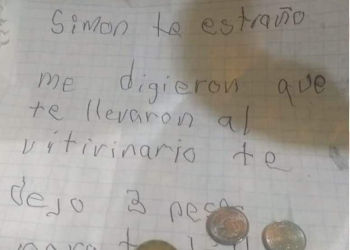 Simon te estraño
me digieron que
te llevaron al
vitirinario te
dejo 3 pec
para t